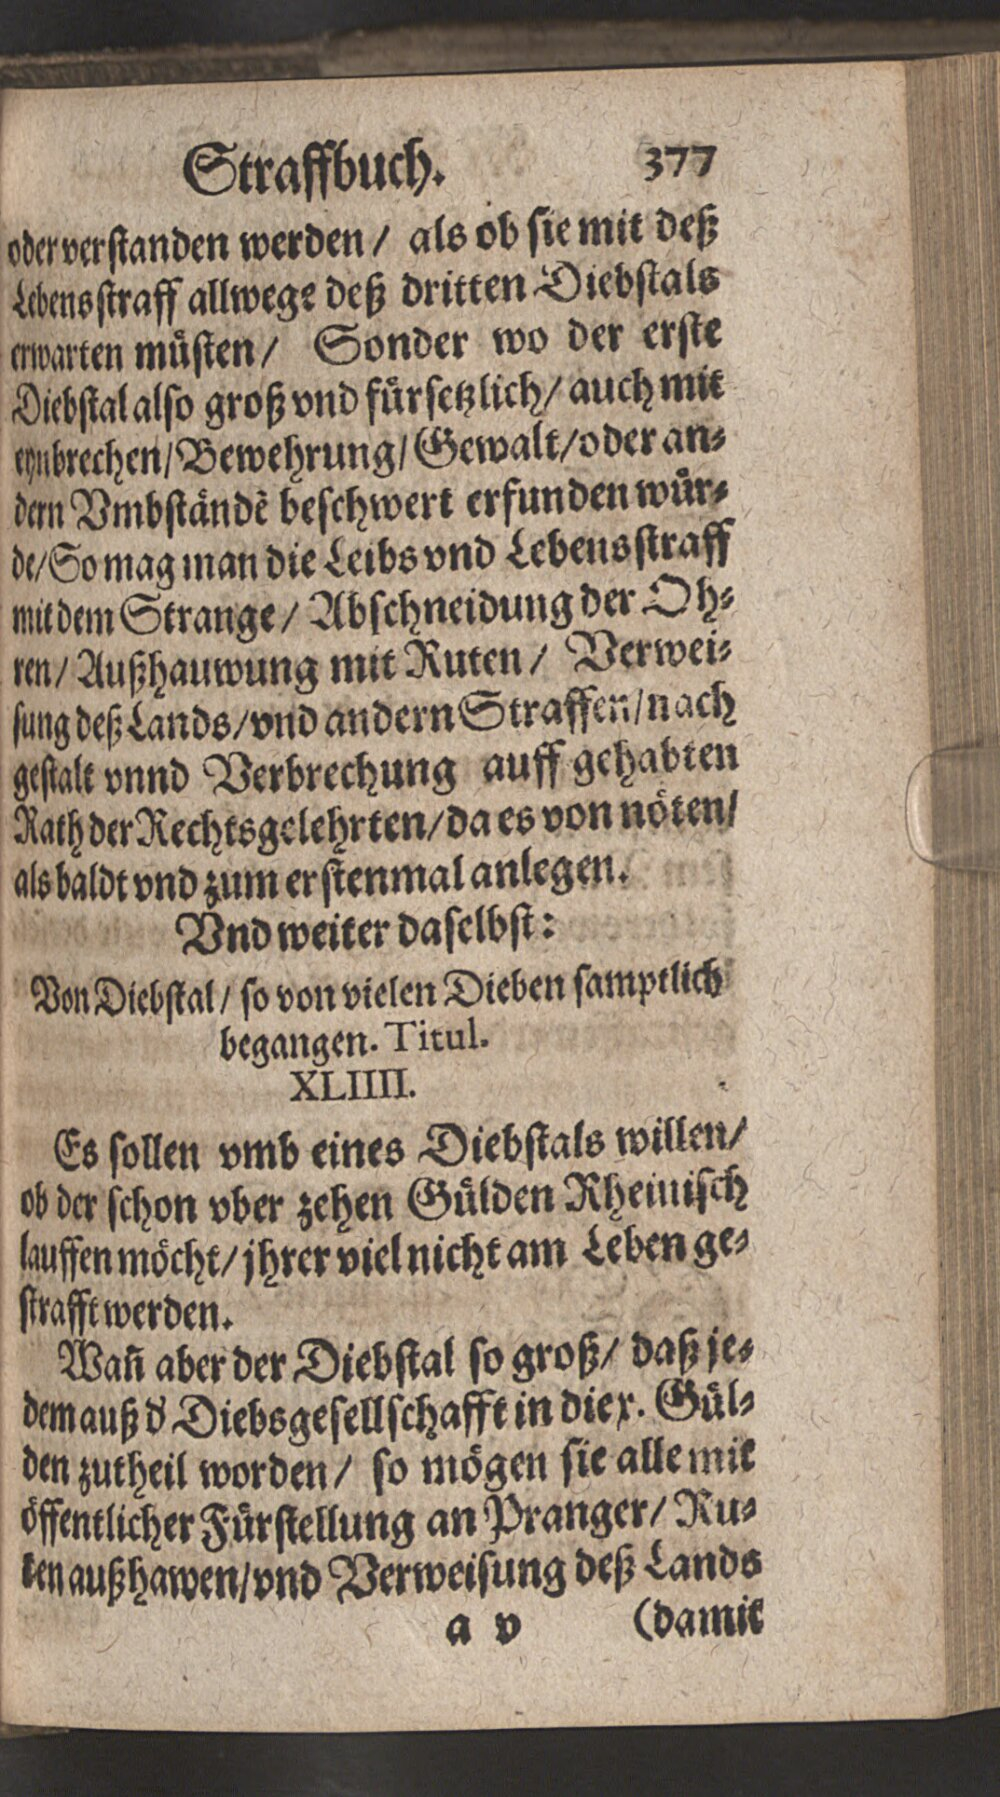 Straffbuch. 377
oder verstanden werden / als ob sie mit deß
Lebensstraff allwege deß dritten Diebstals
erwarten müsten / Sonder wo der erste
Diebstal also groß vnd fürsetzlich / auch mit
eynbrechen / Bewehrung / Gewalt / oder an⸗
dern Vmbständẽ beschwert erfunden wür⸗
de / So mag man die Leibs vnd Lebensstraff
mit dem Strange / Abschneidung der Oh⸗
ren / Außhauwung mit Ruten / Verwei⸗
sung deß Lands / vnd andern Straffen / nach
gestalt vnnd Verbrechung auff gehabten
Rath der Rechtsgelehrten / da es von nöten /
als baldt vnd zum erstenmal anlegen.
Vnd weiter daselbst:
Von Diebstal / so von vielen Dieben samptlich
begangen. Titul.
XLIIII.
Es sollen vmb eines Diebstals willen /
ob der schon vber zehen Gülden Rheinisch
lauffen möcht / jhrer viel nicht am Leben ge⸗
strafft werden.
Wañ aber der Diebstal so groß / daß je⸗
dem auß d' Diebsgesellschafft in die x. Gül⸗
den zutheil worden / so mögen sie alle mit
öffentlicher Fürstellung an Pranger / Ru⸗
ten außhawen / vnd Verweisung deß Lands
a v (damit